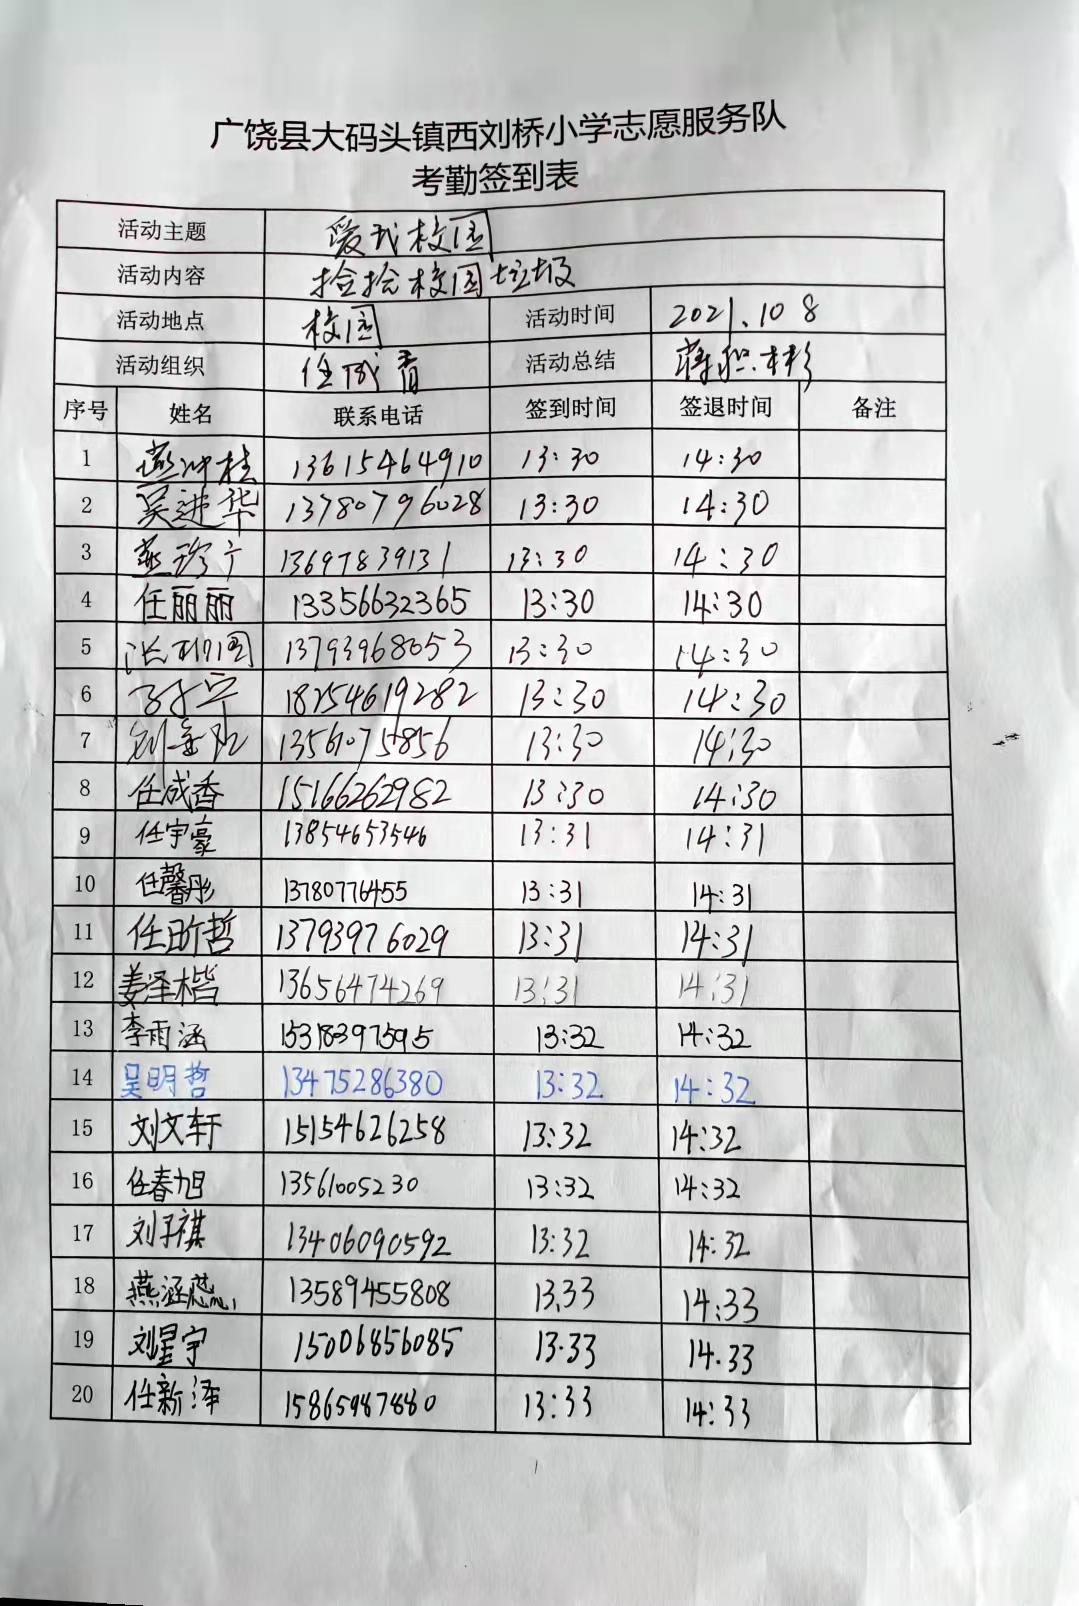 广饶县大码头镇西刘桥小学志愿服务队
考勤签到表
活动主题 爱我校园
活动内容 捡拾校园垃圾
活动地点 校园 活动时间 2021.10 8
活动组织 任成香 活动总结
序号 姓名 联系电话 签到时间 签退时间 备注
1 13615464910 13:30 14:30
2 吴进华 13780796028 13:30 14:30
3 燕珍宁 13697839131 13:30 14:30
4 任丽丽 13356632365 13:30 14:30
5 13793968053 13:30 14:30
6 18254619282 13:30 14:30
7 13561075856 13:30 14:30
8 任成香 15166262982 13:30 14:30
9 任宇豪 13854653546 13:31 14:31
10 任馨彤 13780776455 13:31 14:31
11 任昕哲 13793976029 13:31 14:31
12 姜泽楷 13656474269 13:31 14:31
13 李雨涵 15318397595 13:32 14:32
14 吴明哲 13475286380 13:32 14:32
15 刘文轩 15154626258 13:32 14:32
16 任春旭 13561005230 13:32 14:32
17 刘子祺 13406090592 13:32 14:32
18 燕涵蕊 13589455808 13.33 14:33
19 刘星宇 15006856085 13.33 14.33
20 任新泽 15865987880 13:33 14:33